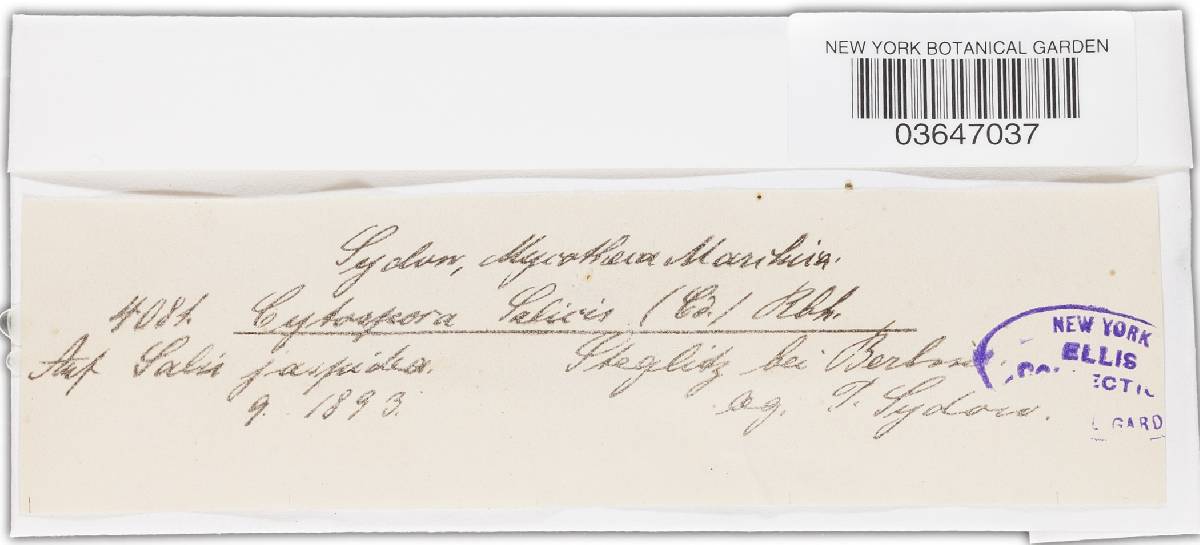 NEW YORK BOTANICAL GARDEN
03647037
Sydow, Mycotheca Marchica.
4081. Cytospora Salicis (Cd.) Rbh.
Auf Salix jaspidea. Steglitz bei Berlin.
9. 1893. leg. P. Sydow.
NEW YORK
ELLIS
GARD